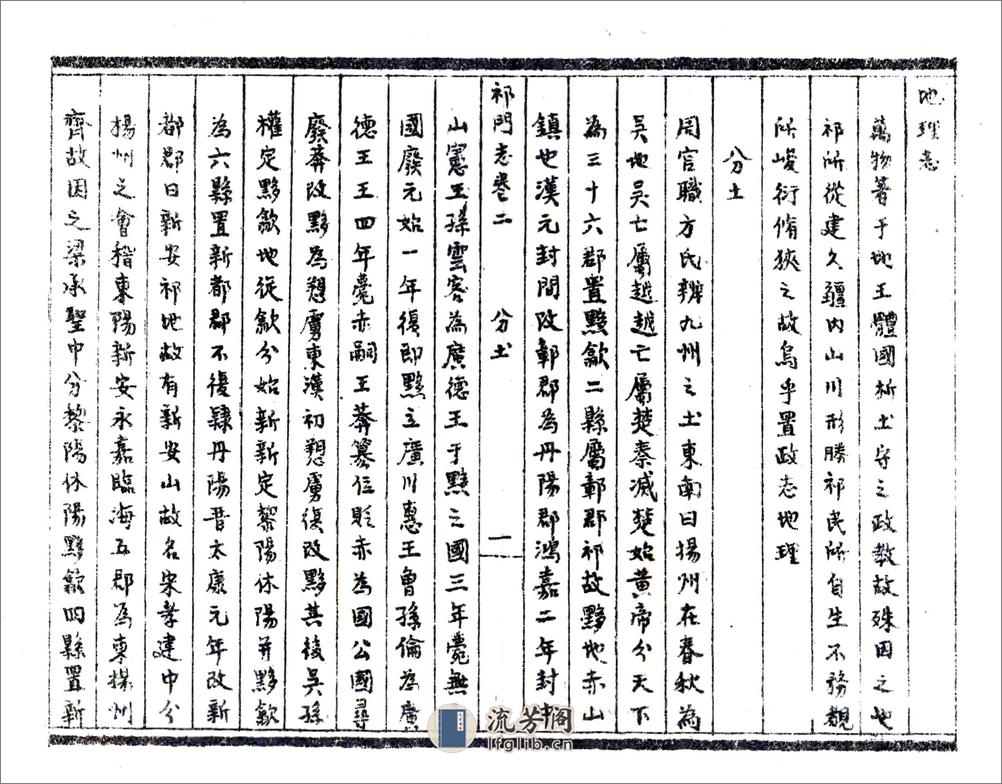 地理志
萬物著于地王體國析土守之政教故殊因之地
祁所從建久疆內山川形勝祁民所自生不務觀
所嵕衍脩狹之故烏乎置政志地理
分土
周官職方氏辨九州之土東南曰揚州在春秋為
吳地吳亡屬越越亡屬楚秦滅楚始黃帝分天下
為三十六郡置黟歙二縣屬鄣郡祁故黟地赤山
鎮也漢元封間改鄣郡為丹陽郡鴻嘉二年封中
祁門志卷二 分土 一
山憲王孫雲客為廣德王于黟之國三年薨無
國廢元始一年復即黟立廣川惠王曾孫倫為廣
德王王四年薨赤嗣王莽篡位貶赤為國公國尋
廢莽改黟為愬虜東漢初愬虜復改黟其後吳孫
權定黟歙地從歙分始新新定黎陽休陽并黟歙
為六縣置新都郡不復隸丹陽晉太康元年改新
都郡曰新安祁地故有新安山故名宋孝建中分
楊州之會稽東陽新安永嘉臨海五郡為東揚州
齊故因之梁承聖中分黎陽休陽黟歙四縣置新
流芳阁
lfglib.cn